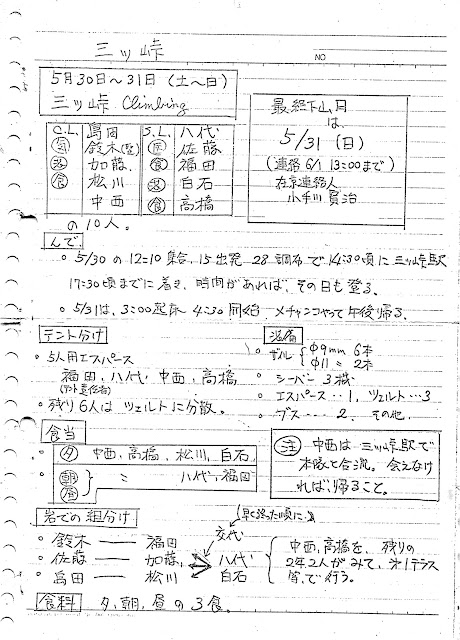 三ッ峠
NO
5月30日～31日 (土～日)
三ッ峠 Climbing
最終下山日
は、
5/31 (日)
(連絡 6/1 13:00まで)
在京連絡人
小手川 賢治
C.L. 島田 S.L. 八代
鈴木 医 佐藤
加藤 食 福田
食 松川 白石
中西 食 高橋
の10人。
んで。
○ 5/30 の 12:10 集合、15 出発 28 調布で 14:30頃に 三ッ峠駅
17:30頃までに着き、時間があれば、その日も登る。
○ 5/31は、3:00起床 4:30 開始 メチャンコやって午後帰る。
テント分け
○ 5人用エスパース
福田、八代、中西、高橋
(テント責任者)
○ 残り6人は ツェルトに分散。
装備
○ ザイル { φ9mm 6本
φ11 〃 2本
○ シーバー 3機
○ エスパース…1, ツェルト…3
○ ガス… 2, その他、
食当
○ 夕 中西、高橋、松川、白石
○ 朝 昼 } 〃 八代、福田
注 中西は三ッ峠駅で
本隊と合流。会えなけ
れば、帰ること。
岩での組分け
早く終った頃に
交代
○ 鈴木 — 福田
○ 佐藤 — 加藤、 八代
○ 島田 — 松川 白石
中西、高橋を、残りの
2年2人がみて、第1テラス
等、で行う。
食料 夕、朝、昼の3食。